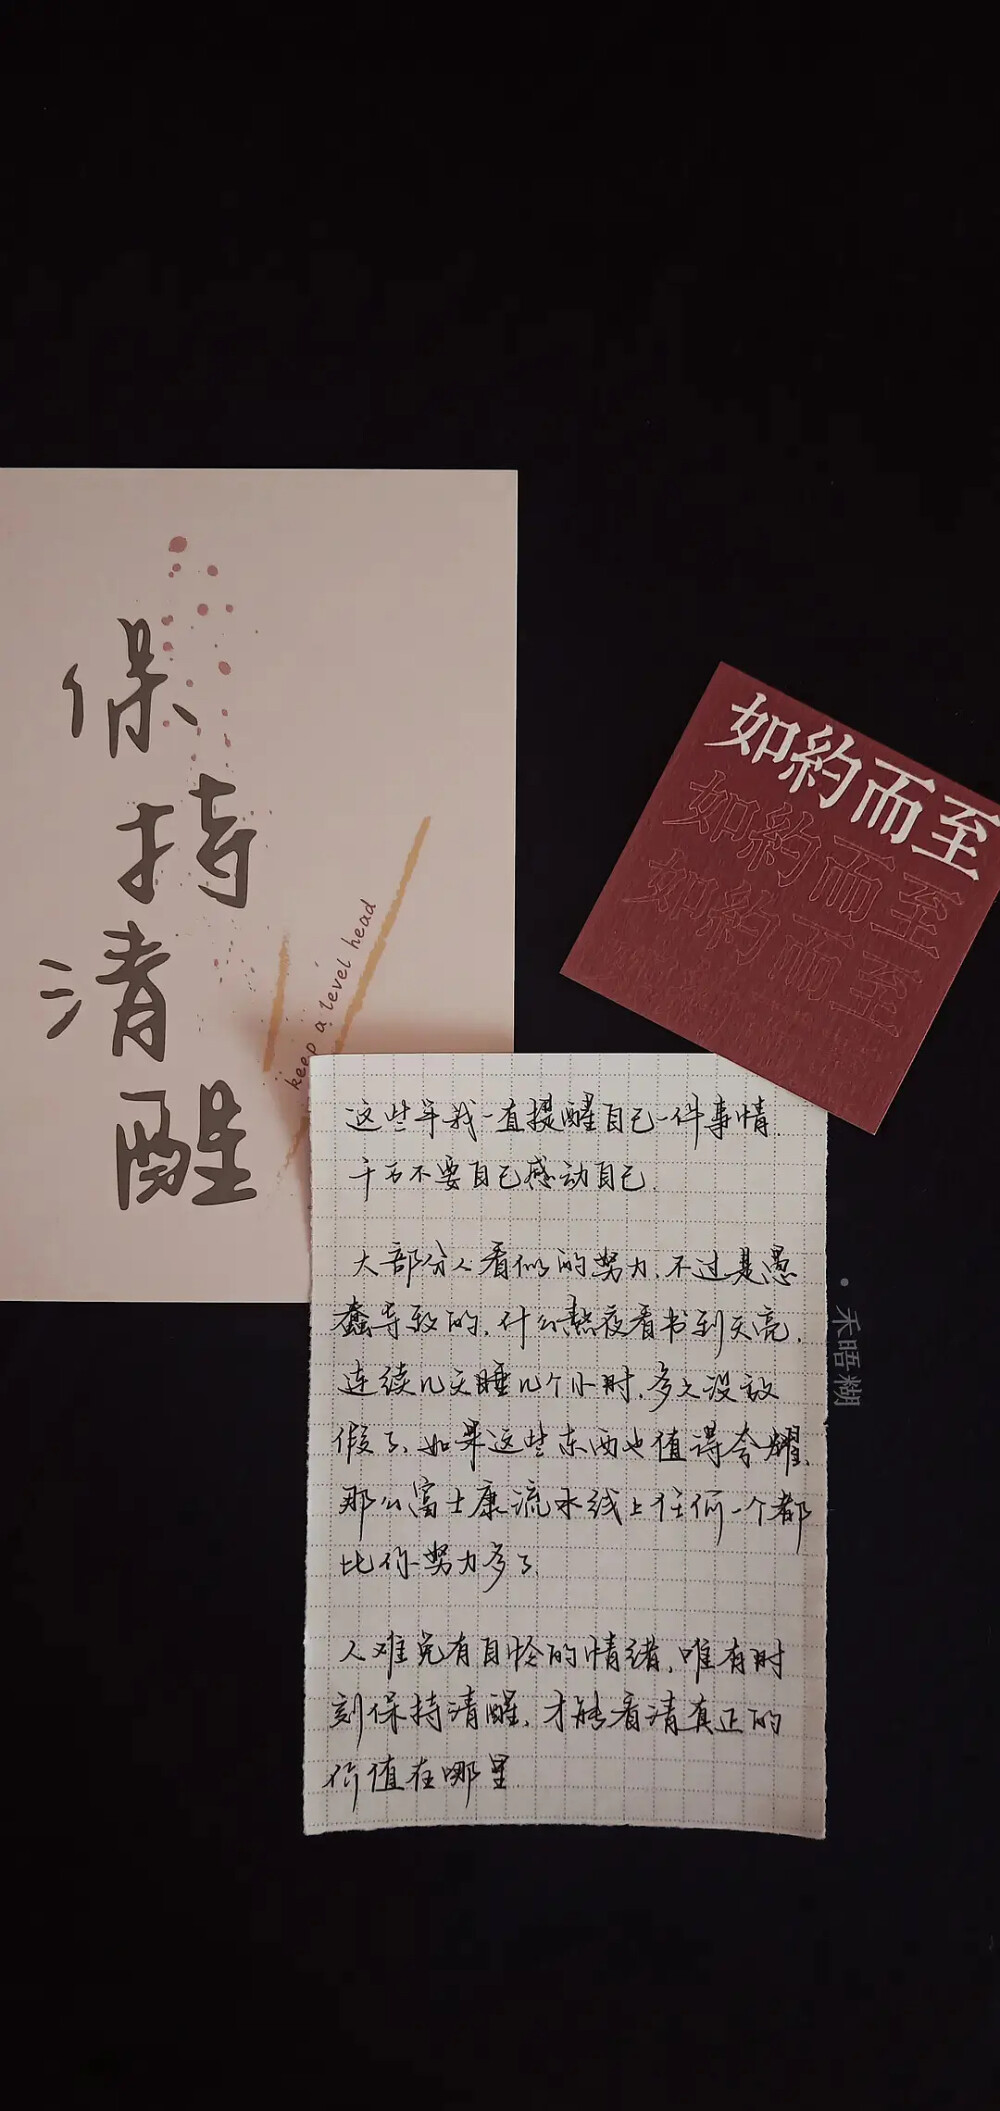 保
持
清
醒
keep a level head
如約而至
如約而至
如約而至
这些年我一直提醒自己一件事情,
千万不要自己感动自己.
大部分人看似的努力,不过是愚
蠢导致的,什么熬夜看书到天亮,
连续几天睡几个小时,多久没放
假了,如果这些东西也值得夸耀,
那么富士康流水线上任何一个都
比你努力多了.
人难免有自怜的情绪,唯有时
刻保持清醒,才能看清真正的
价值在哪里.
禾晤糊